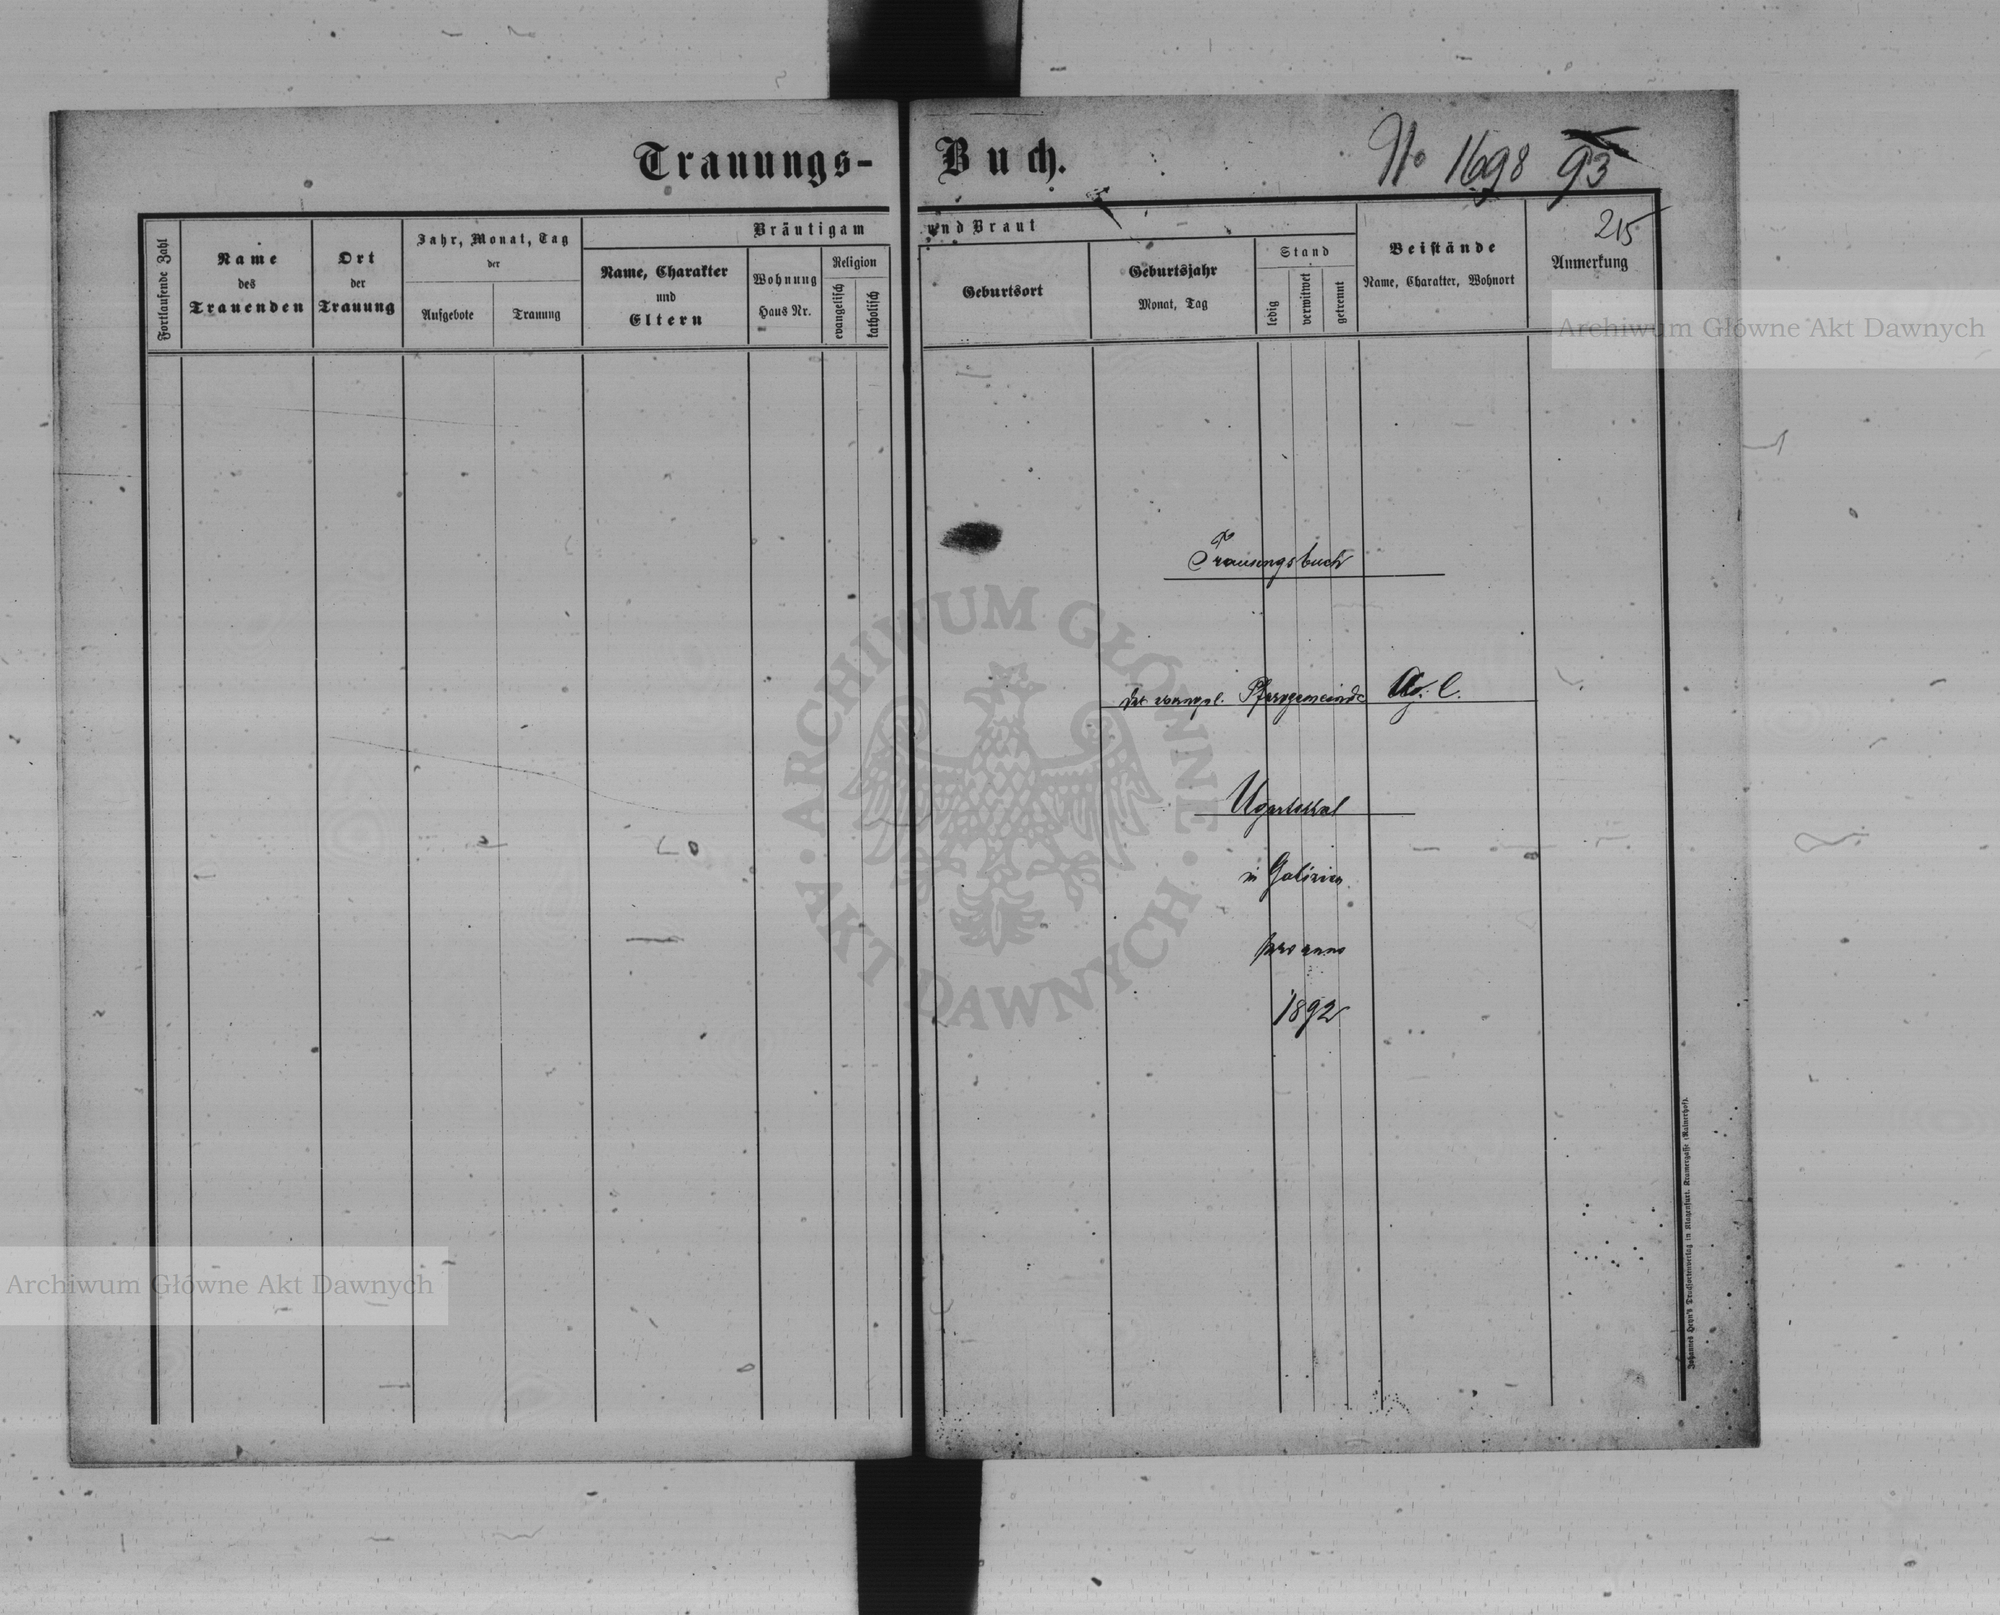 Trauungs- Buch.
No 1698 93
215
Fortlaufende Zahl
Name
des
Trauenden
Ort
der
Trauung
Jahr, Monat, Tag
der
Aufgebote
Trauung
Bräutigam und Braut
Name, Charakter
und
Eltern
Wohnung
Haus Nr.
Religion
evangelisch
katholisch
Geburtsort
Geburtsjahr
Monat, Tag
Stand
ledig
verwitwet
getrennt
Beistände
Name, Charakter, Wohnort
Anmerkung
Archiwum Główne Akt Dawnych
Trauungsbuch
der evangel. Pfarrgemeinde A. C.
Ugartsthal
in Galizien
pro anno
1892
ARCHIWUM GŁÓWNE AKT DAWNYCH
Archiwum Główne Akt Dawnych
Johannes Heyn's Drucksortenverlag in Klagenfurt, Kramergasse (Rainerhof).